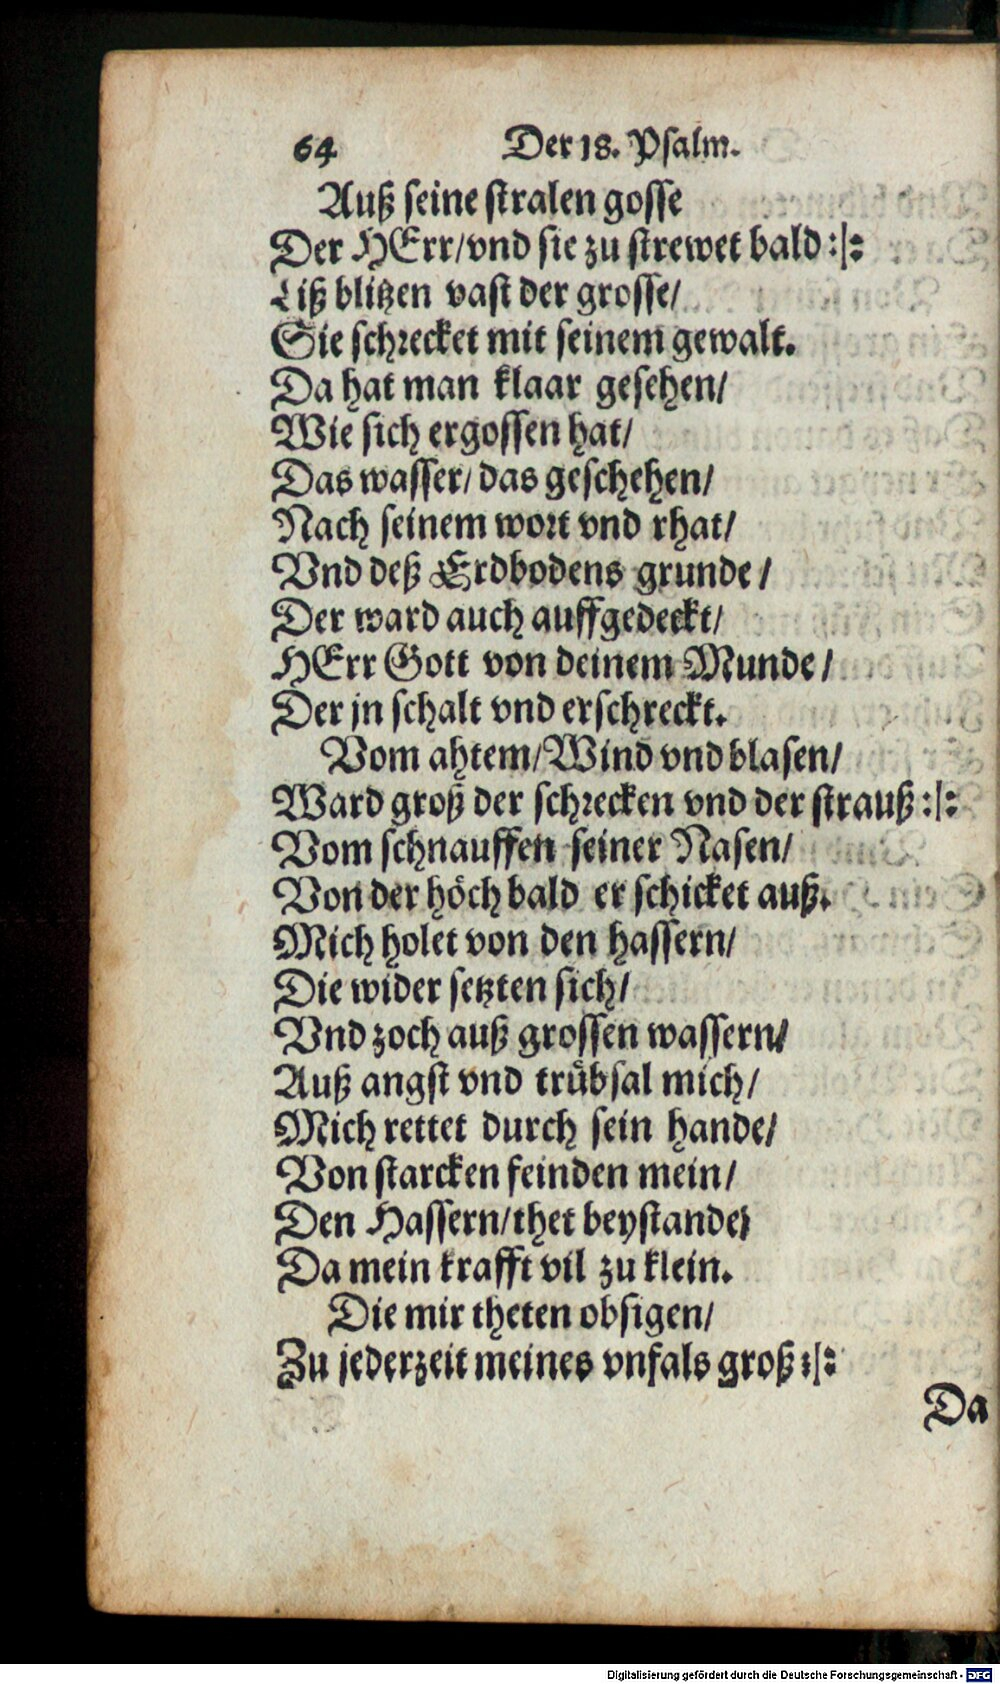 64 Der 18. Psalm.
Auß seine stralen gosse
Der HErr/vnd sie zu strewet bald :|:
Liß blitzen vast der grosse/
Sie schrecket mit seinem gewalt.
Da hat man klaar gesehen/
Wie sich ergossen hat/
Das wasser/ das geschehen/
Nach seinem wort vnd rhat/
Vnd deß Erdbodens grunde/
Der ward auch auffgedeckt/
HErr Gott von deinem Munde/
Der jn schalt vnd erschreckt.
Vom ahtem/Wind vnd blasen/
Ward groß der schrecken vnd der strauß :|:
Vom schnauffen seiner Nasen/
Von der höch bald er schicket auß.
Mich holet von den hassern/
Die wider setzten sich/
Vnd zoch auß grossen wassern/
Auß angst vnd trübsal mich/
Mich rettet durch sein hande/
Von starcken feinden mein/
Den Hassern/thet beystande/
Da mein krafft vil zu klein.
Die mir theten obsigen/
Zu jederzeit meines vnfals groß :|:
Da
Digitalisierung gefördert durch die Deutsche Forschungsgemeinschaft - DFG